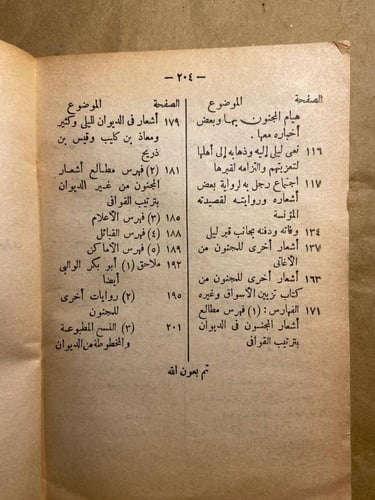 — ٢٠٤ —
الصفحة الموضوع
هيام المجنون بها وبعض
أخباره معها.
١١٦ نعى ليلى إليه وذهابه إلى أهلها
لتعزيتهم والتزامه لقبرها
١١٧ اجتماع رجل به لرواية بعض
أشعاره وروايته لقصيدته
المؤنسة
١٣٤ وفاته ودفنه بجانب قبر ليلى
١٣٧ أشعار أخرى للمجنون من
الأغانى
١٦٣ أشعار أخرى للمجنون من
كتاب تزيين الأسواق وغيره
١٧١ الفهارس : (١) فهرس مطالع
أشعار المجنون فى الديوان
بترتيب القوافى
الصفحة الموضوع
١٧٩ أشعار فى الديوان لليلى وكثير
ومعاذ بن كليب وقيس بن
ذريح
١٨١ (٢) فهرس مطالع أشعار
المجنون من غير الديوان
بترتيب القوافى
١٨٥ (٣) فهرس الأعلام
١٨٨ (٤) فهرس القبائل
١٨٩ (٥) فهرس الأماكن
١٩٢ ملاحق (١) أبو بكر الوالبي
أيضا
١٩٥ (٢) روايات أخرى
للمجنون
٢٠١ (٣) النسخ المطبوعة
والمخطوطة من الديوان
تم بعون الله